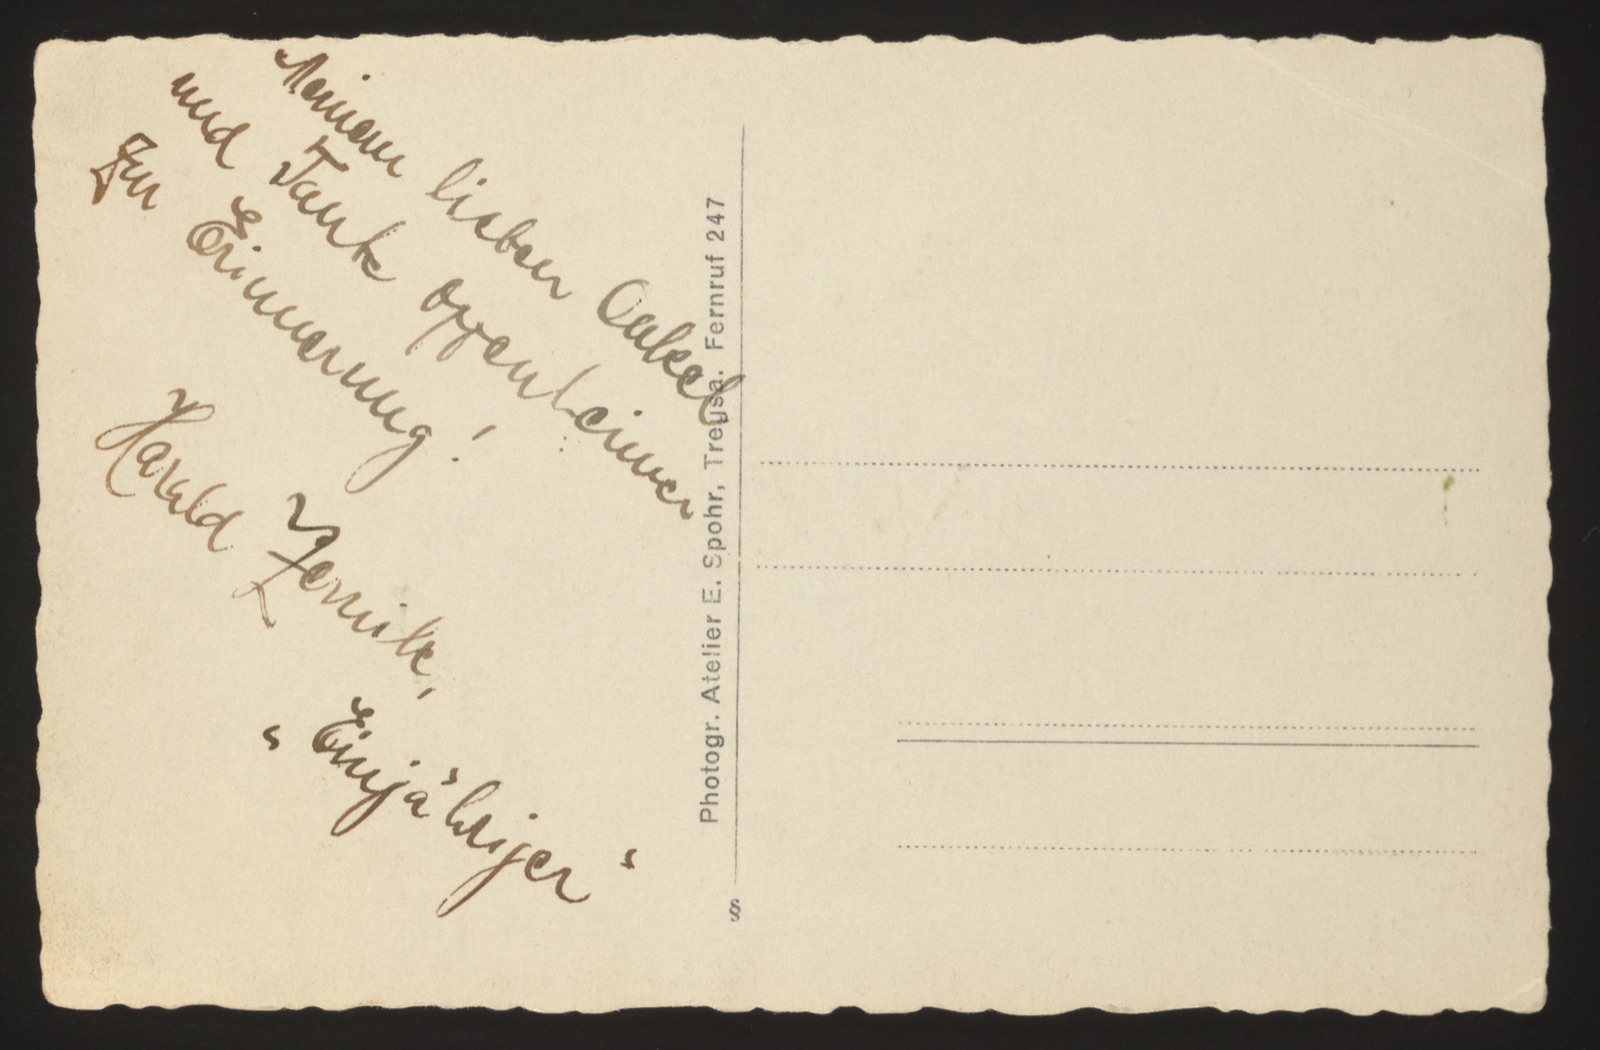 Meinem lieben Onkel
und Tante Oppenheimer
Zur Erinnerung!
Harald Zernik,
"Einjähriger"
Photogr. Atelier E. Spohr, Treysa. Fernruf 247